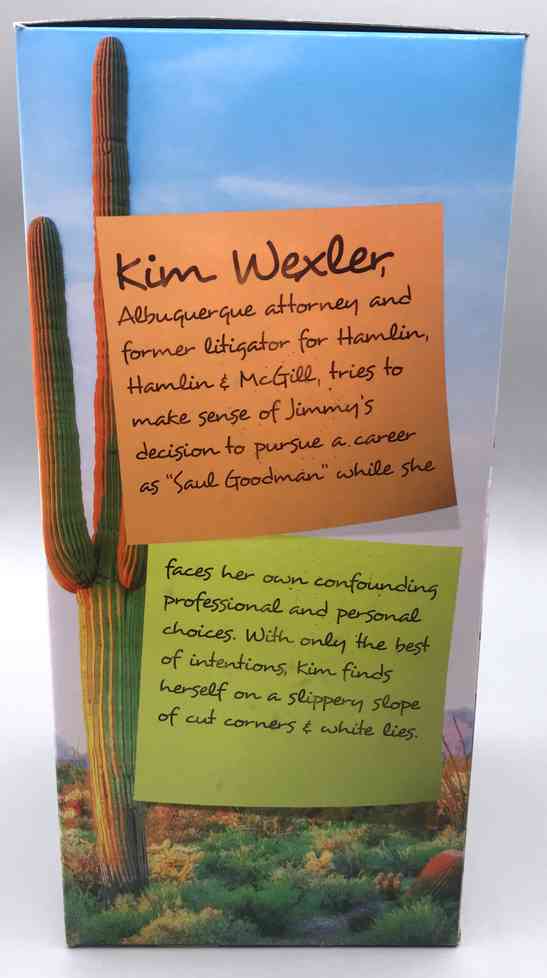 Kim Wexler,
Albuquerque attorney and
former litigator for Hamlin,
Hamlin & McGill, tries to
make sense of Jimmy's
decision to pursue a career
as "Saul Goodman" while she
faces her own confounding
professional and personal
choices. With only the best
of intentions, Kim finds
herself on a slippery slope
of cut corners & white lies.